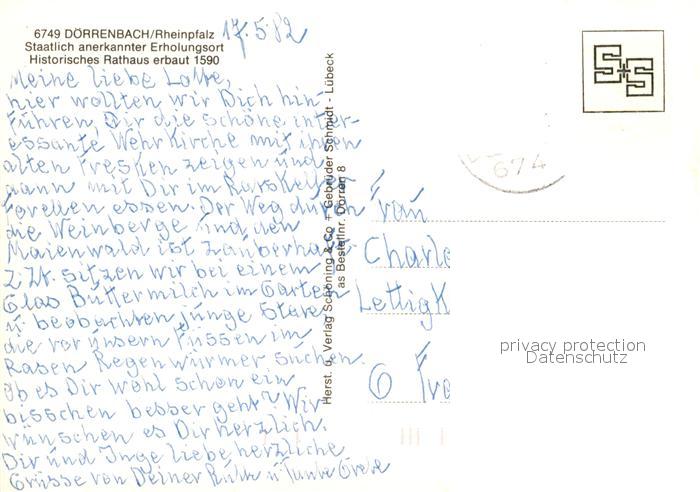 6749 DÖRRENBACH/Rheinpfalz
Staatlich anerkannter Erholungsort
Historisches Rathaus erbaut 1590
17.5.82
Meine liebe Lotte,
hier wollten wir Dich hin-
führen, Dir die schöne inter-
essante Wehrkirche mit ihren
alten Fresken zeigen und
dann mit Dir im Ratskeller
Forellen essen. Der Weg durch
die Weinberge und den
Maienwald ist zauberhaft
z. Zt. sitzen wir bei einem
Glas Buttermilch im Garten
u. beobachten junge Stare
die vor unsern Füssen im
Rasen Regenwürmer suchen.
Ob es Dir wohl schon ein
bisschen besser geht? Wir
wünschen es Dir herzlich.
Dir und Inge liebe herzliche
Grüsse von Deiner Ruth u Tante Grete
Herst. u. Verlag Schöning & Co + Gebrüder Schmidt - Lübeck
as Bestellnr. Dörren 8
S+S
674
Frau
Charlo
Lettigk
6 Fra
privacy protection
Datenschutz